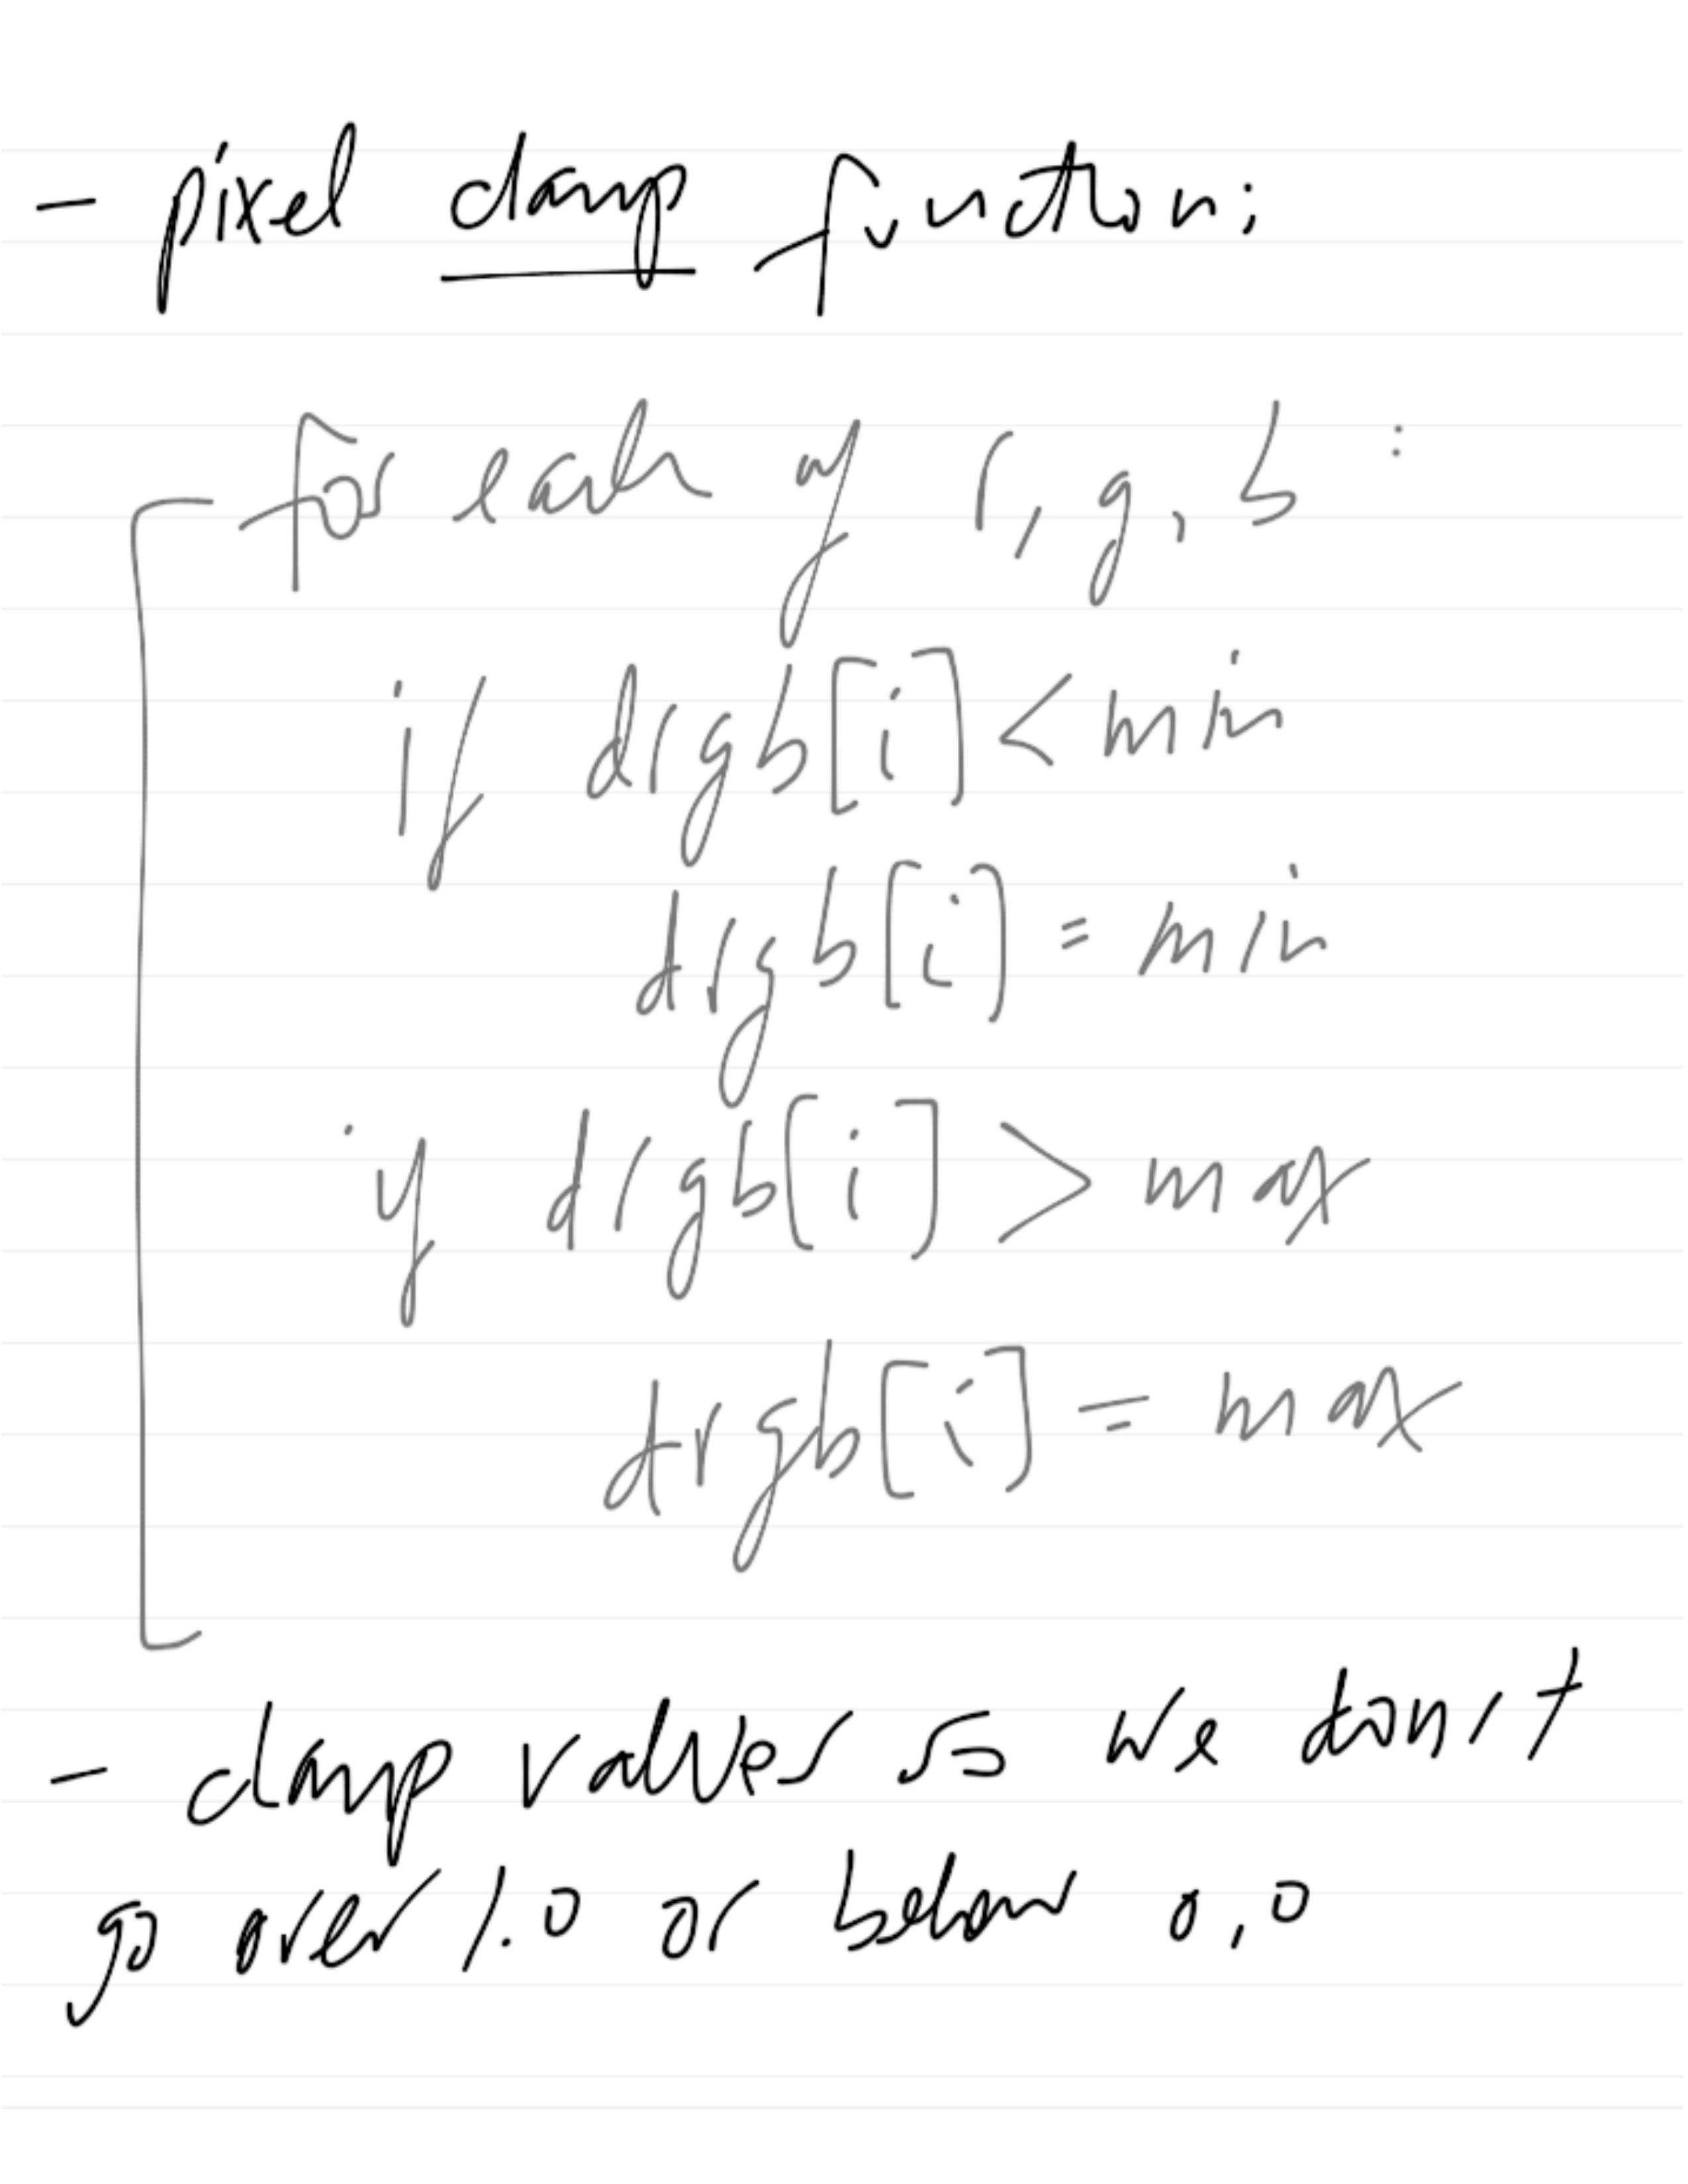 - pixel clamp function:
for each of r, g, b :
if drgb[i] < min
drgb[i] = min
if drgb[i] > max
drgb[i] = max
- clamp values so we don't
go over 1.0 or below 0.0